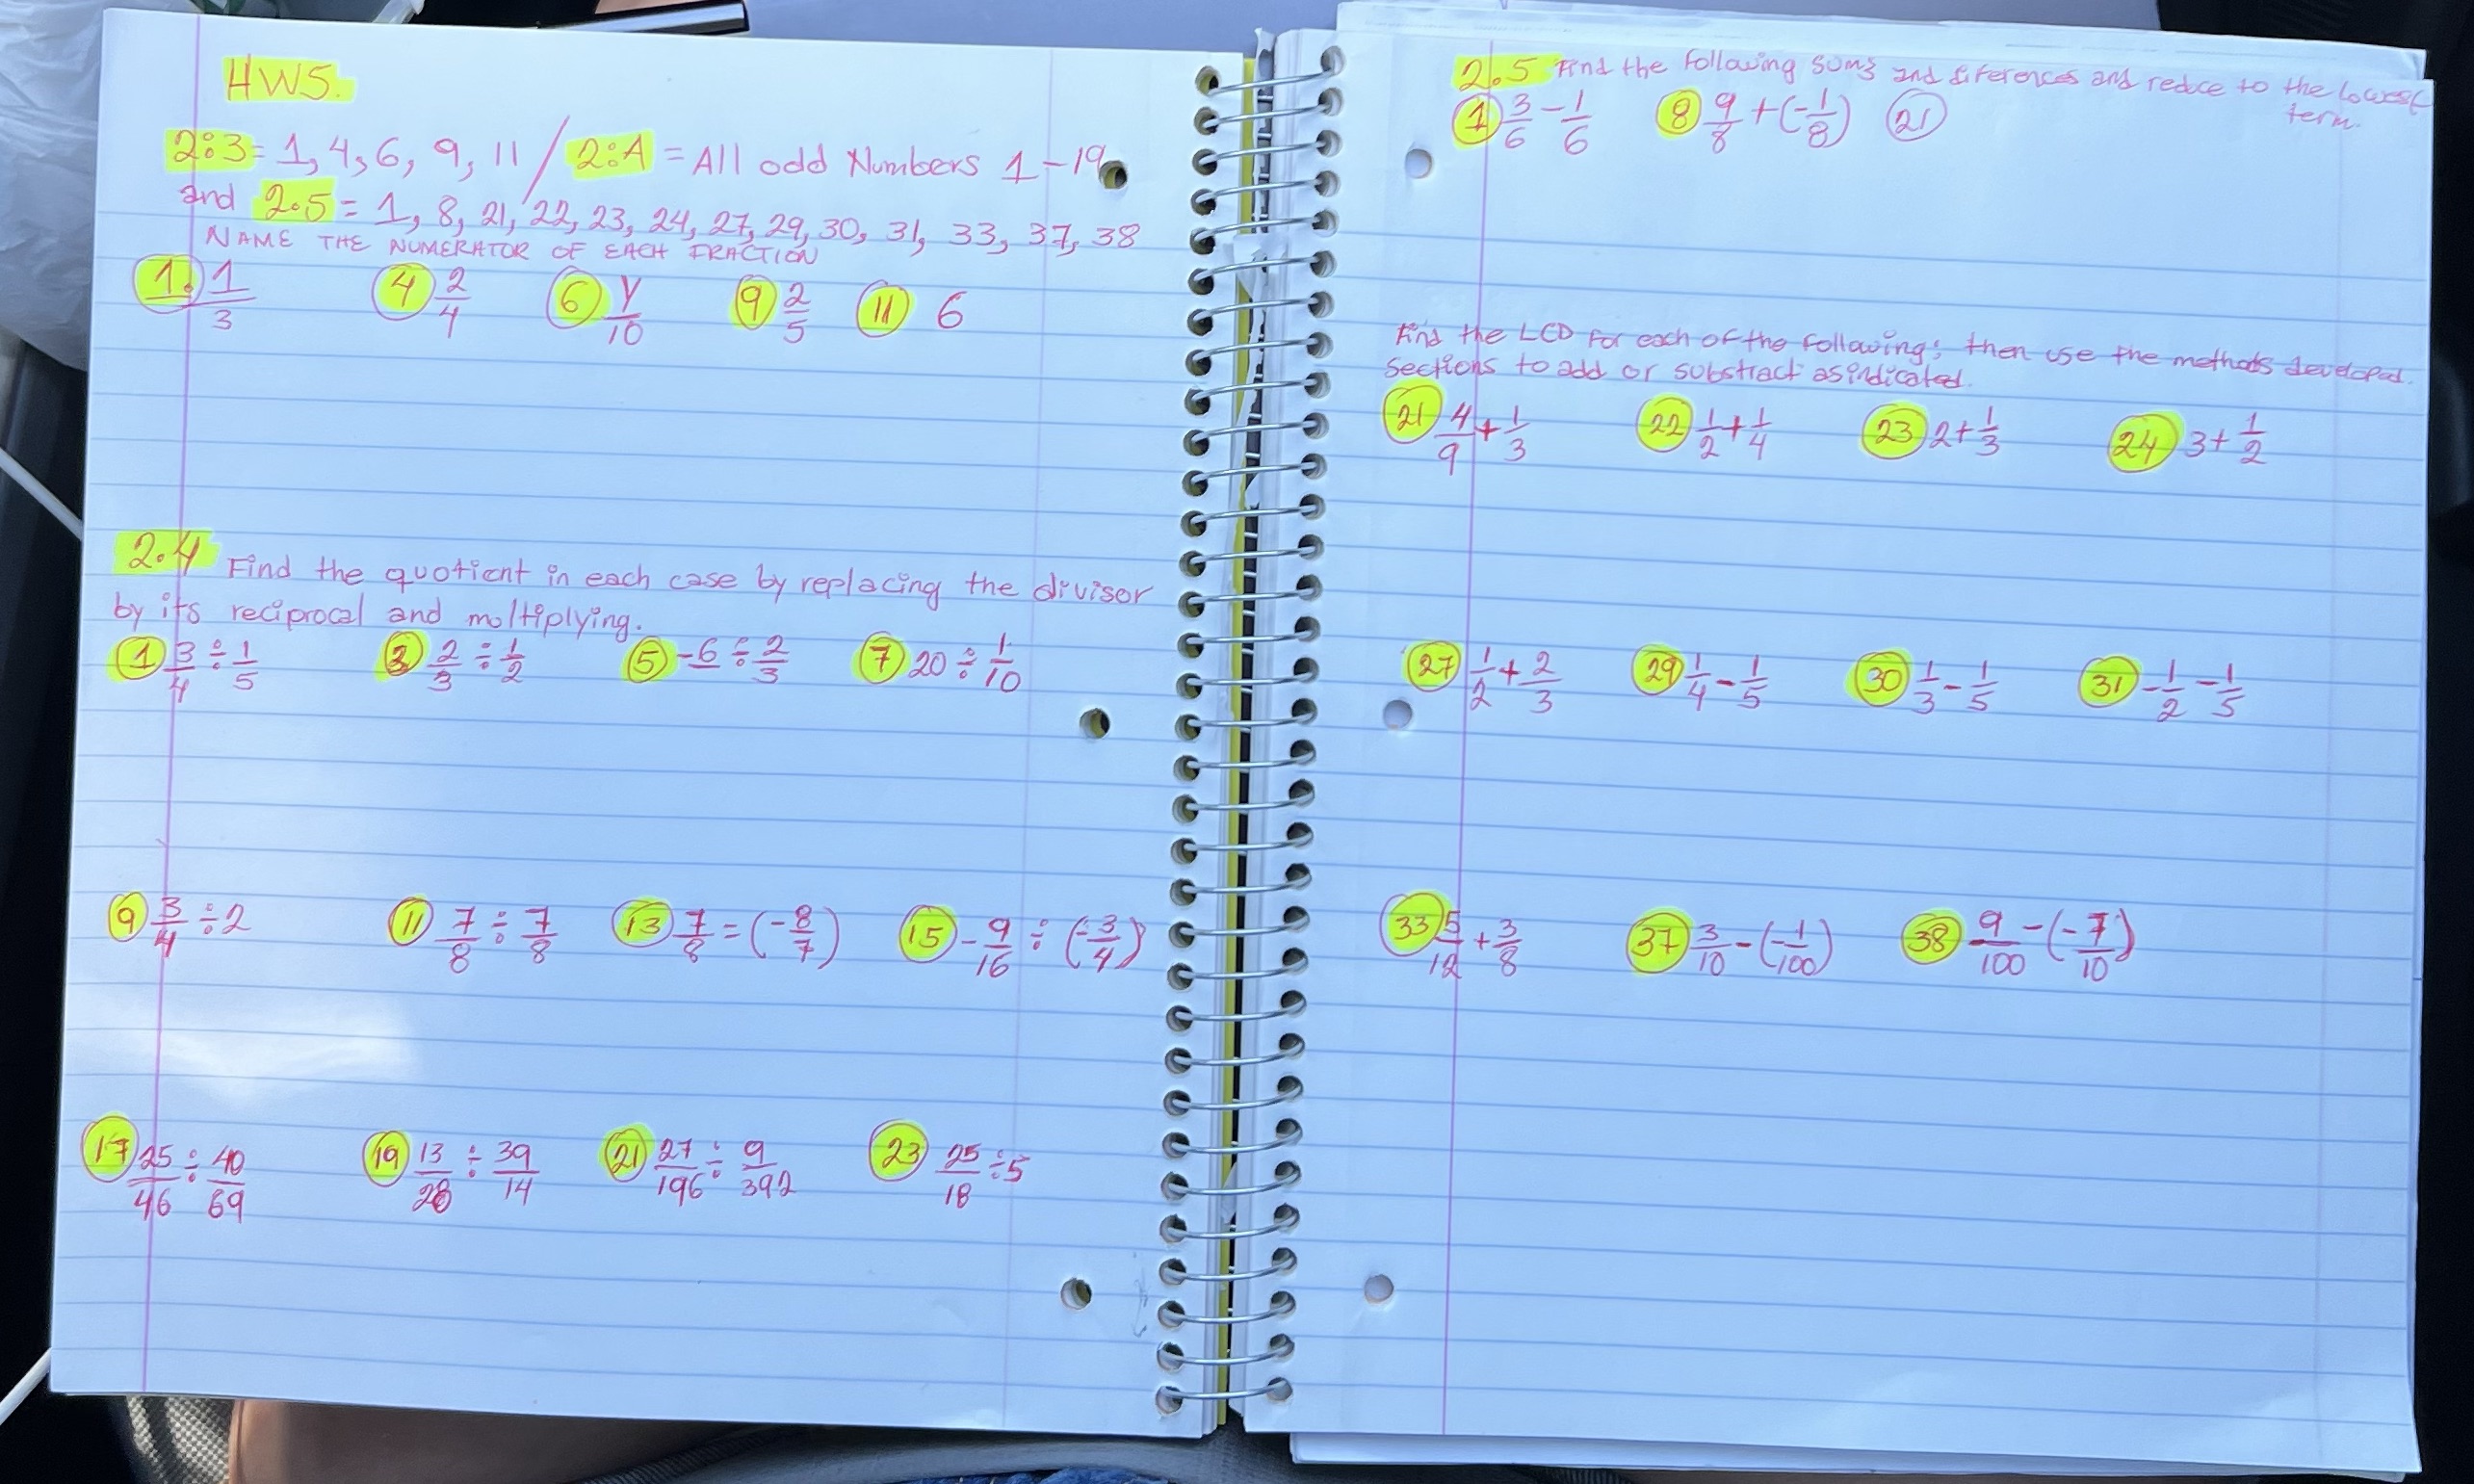 HW5.
2:3= 1, 4, 6, 9, 11 / 2:4 = All odd Numbers 1-19
and 2.5 = 1, 8, 21, 22, 23, 24, 27, 29, 30, 31, 33, 37, 38
NAME THE NUMERATOR OF EACH FRACTION
1. 1/3 4 2/4 6 y/10 9 2/5 11 6
2.4 Find the quotient in each case by replacing the divisor
by its reciprocal and moltiplying.
1 3/4 ÷ 1/5 3 2/3 ÷ 1/2 5 -6 ÷ 2/3 7 20 ÷ 1/10
9 3/4 ÷ 2 11 7/8 ÷ 7/8 13 7/8 = (-8/7) 15 -9/16 ÷ (-3/4)
17 25/46 ÷ 40/69 19 13/28 ÷ 39/14 21 27/196 ÷ 9/392 23 25/18 ÷ 5
2.5 Find the following sums and diferences and reduce to the lowest
term.
1 3/6 - 1/6 8 9/8 + (-1/8) 21
Find the LCD for each of the following; then use the methods developed.
Sections to add or substract as indicated.
21 4/9 + 1/3 22 1/2 + 1/4 23 2 + 1/3 24 3 + 1/2
27 1/2 + 2/3 29 1/4 - 1/5 30 1/3 - 1/5 31 -1/2 - 1/5
33 5/12 + 3/8 37 3/10 - (-1/100) 38 9/100 - (-7/10)